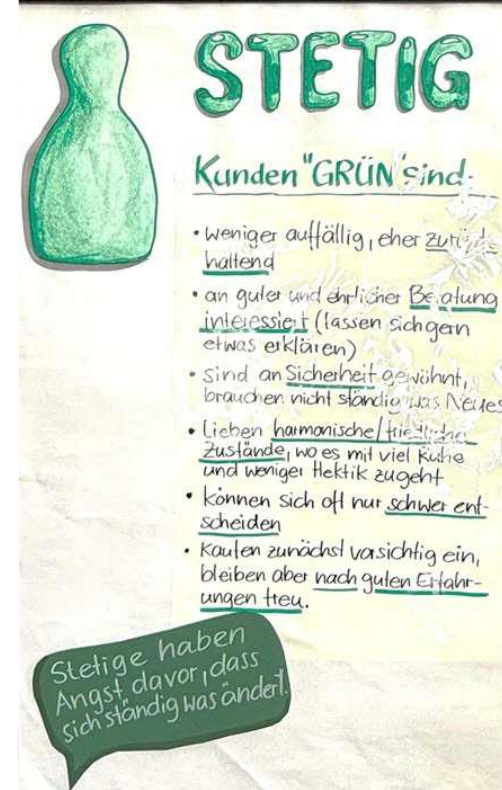 STETIG
Kunden "GRÜN" sind:
• weniger auffällig, eher zurück-
haltend
• an guter und ehrlicher Beratung
interessiert (lassen sich gern
etwas erklären)
• sind an Sicherheit gewöhnt,
brauchen nicht ständig was Neues
• Lieben harmonische/friedliche
Zustände, wo es mit viel Ruhe
und weniger Hektik zugeht
• können sich oft nur schwer ent-
scheiden
• Kaufen zunächst vorsichtig ein,
bleiben aber nach guten Erfahr-
ungen treu.
Stetige haben
Angst davor, dass
sich ständig was ändert.